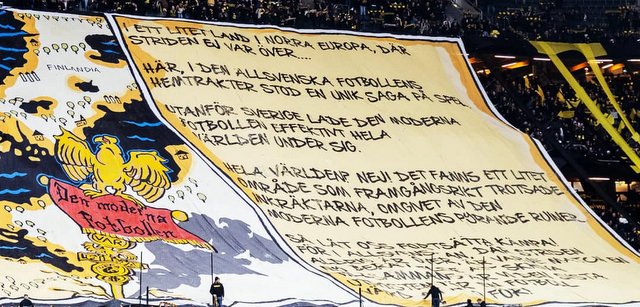 FINLANDIA
Den moderna
Fotbollen
I ETT LITET LAND I NORRA EUROPA, DÄR
STRIDEN EJ VAR ÖVER...
HÄR, I DEN ALLSVENSKA FOTBOLLENS
HEMTRAKTER STOD EN UNIK SAGA PÅ SPEL
UTANFÖR SVERIGE LADE DEN MODERNA
FOTBOLLEN EFFEKTIVT HELA
VÄRLDEN UNDER SIG.
HELA VÄRLDEN? NEJ! DET FANNS ETT LITET
OMRÅDE SOM FRAMGÅNGSRIKT TROTSADE
INKRÄKTARNA, OMGIVET AV DEN
MODERNA FOTBOLLENS PYRANDE RUINER...
SÅ LÅT OSS FORTSÄTTA KÄMPA!
FÖR ALLSVENSKAN